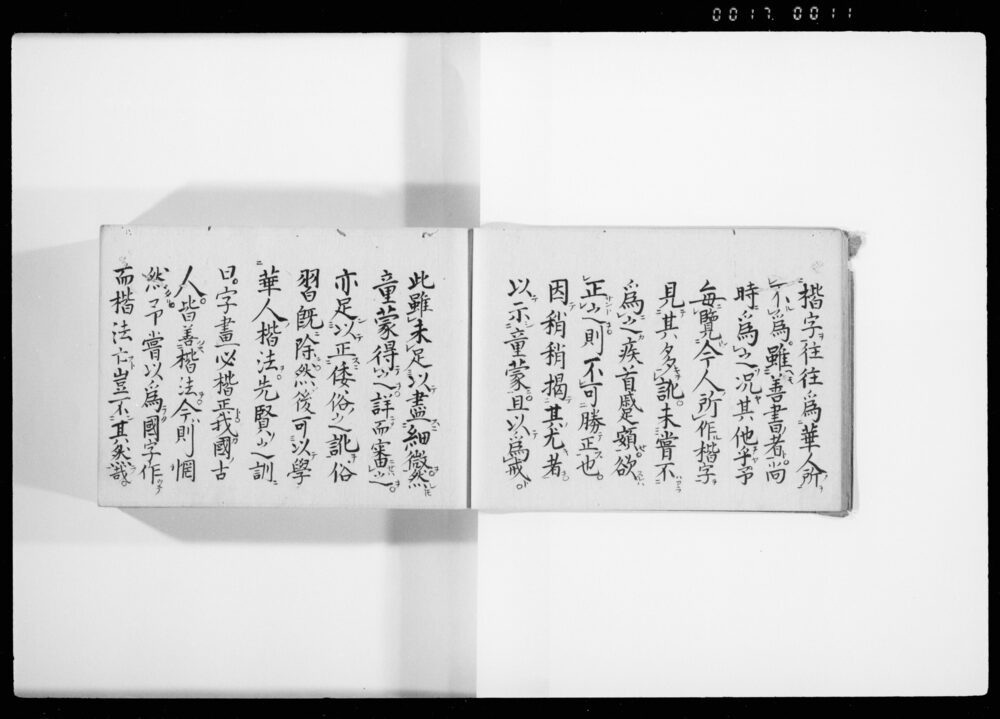 0017 0011
楷字往往爲華人所
不爲雖善書者尚
時爲之况其他乎予
每覽今人所作楷字
見其多訛未嘗不
爲之疾首蹙頞欲
正之則不可勝正也
因稍稍揭其尤者
以示童蒙且以爲戒
此雖未足以盡細微然
童蒙得之詳而審之
亦足以正倭俗之訛俗
習既除然後可以學
華人楷法先賢之訓
曰字畫必楷正我國古
人皆善楷法今則惘
然予嘗以爲國字作
而楷法亡豈不其然哉